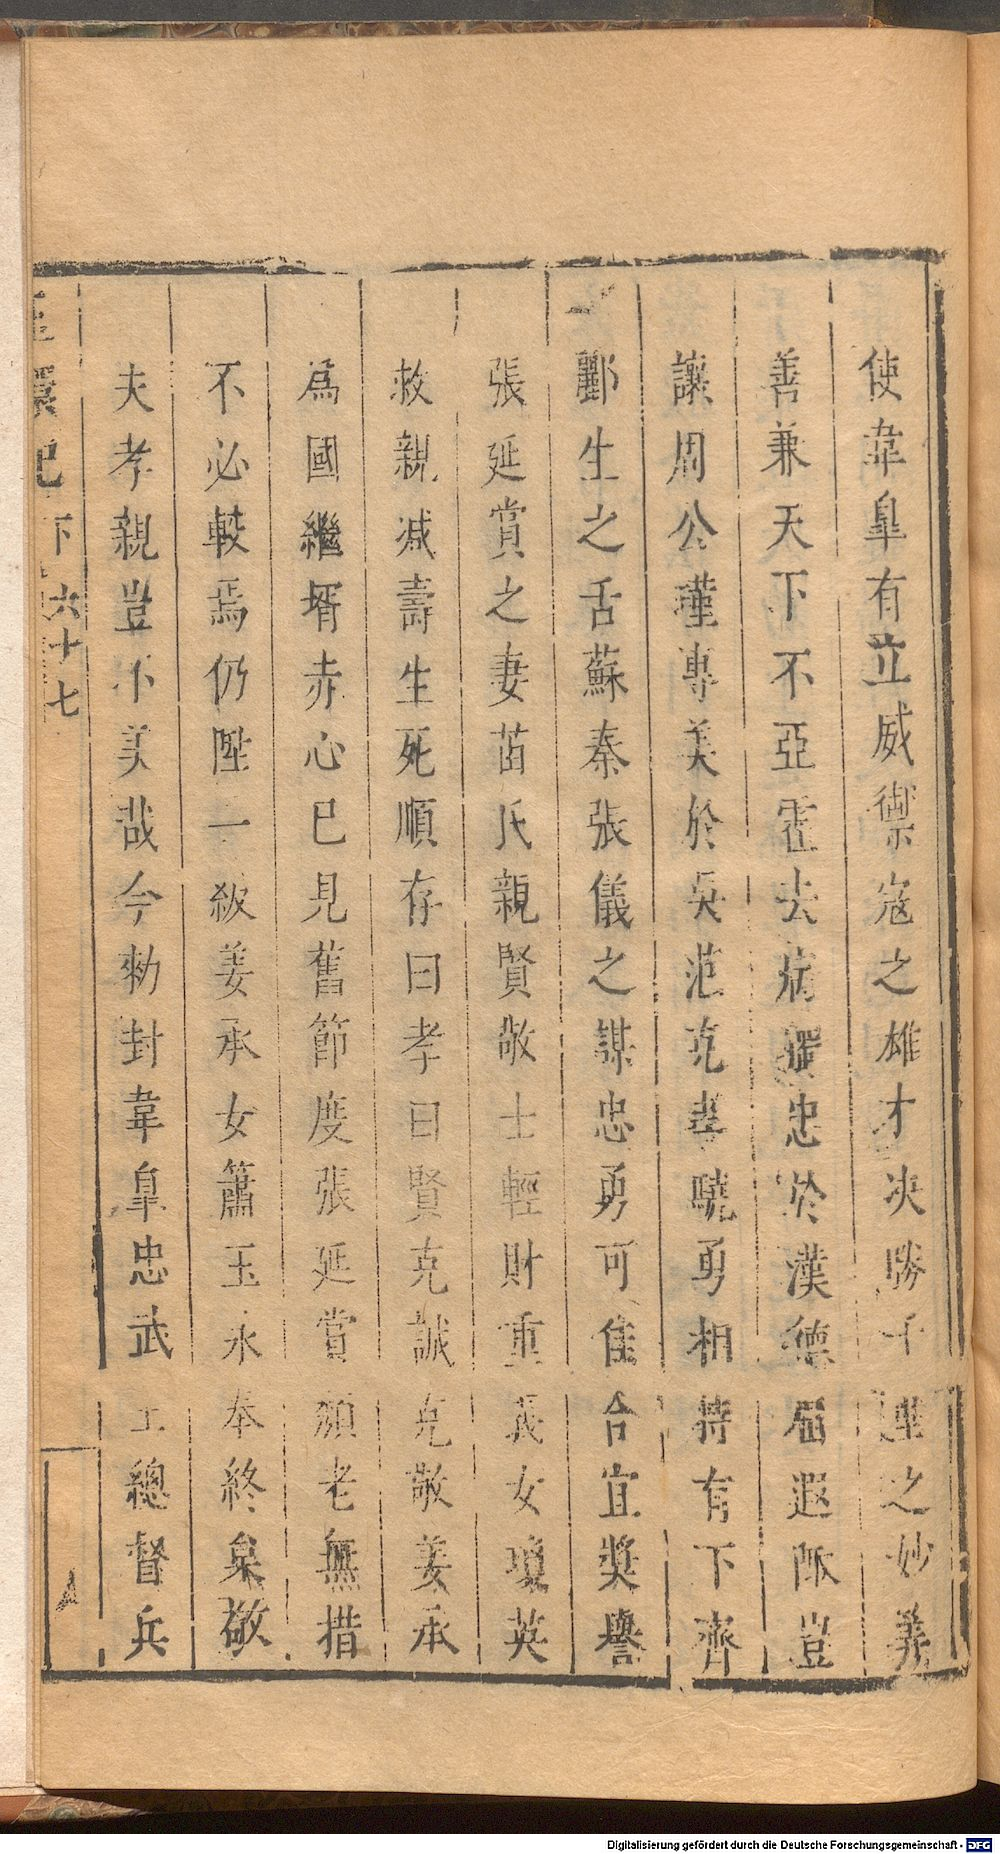 使韋臯有立威禦寇之雄才決勝千里之妙義
善兼天下不亞霍去病攄忠於漢德屆遐陬豈
讓周公瑾專美於吳范克孝曉勇相持有下齊
酈生之舌蘇秦張儀之謀忠勇可佳合宜獎譽
張延賞之妻苗氏親賢敬士輕財重義女瓊英
救親減壽生死順存曰孝曰賢克誠克敬姜承
爲國繼壻赤心已見舊節度張延賞頹老無措
不必較焉仍陞一級姜承女簫玉永奉終梟敬
夫孝親豈不美哉今勑封韋臯忠武王總督兵
環記 下 六十七
Digitalisierung gefördert durch die Deutsche Forschungsgemeinschaft - DFG